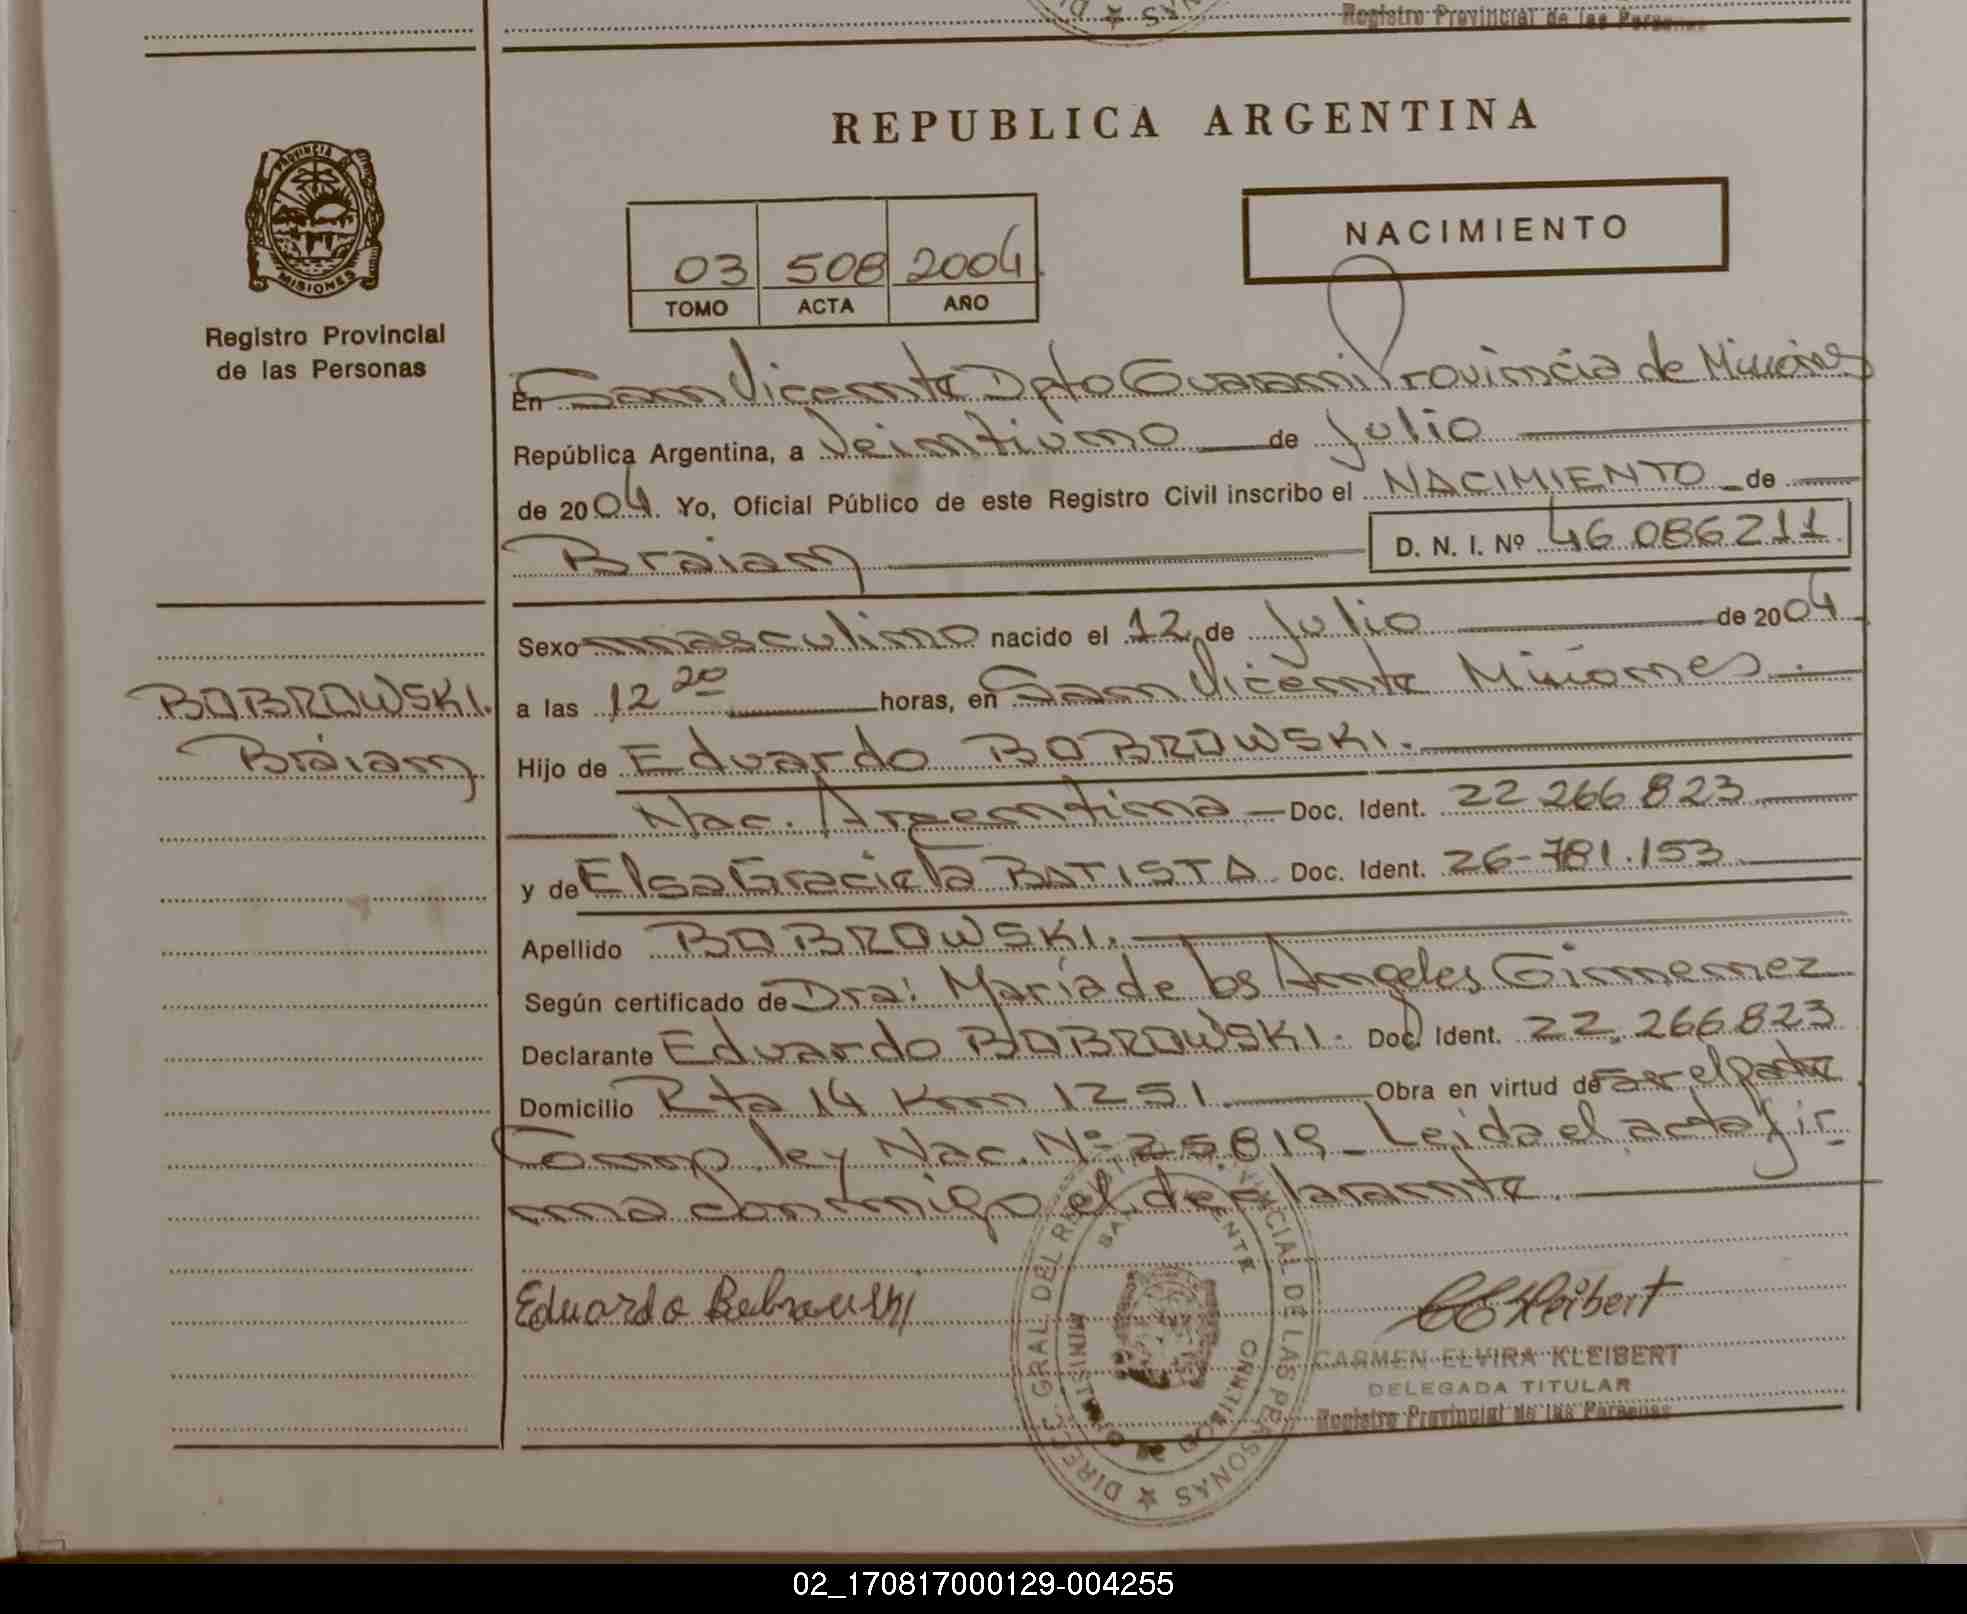 Registro Provincial de las Personas
REPUBLICA ARGENTINA
PROVINCIA DE
MISIONES
Registro Provincial
de las Personas
03 508 2004
TOMO ACTA AÑO
NACIMIENTO
En San Vicente Dpto Guarani Provincia de Misiones
República Argentina, a Veintiuno de Julio
de 2004. Yo, Oficial Público de este Registro Civil inscribo el NACIMIENTO de
Braian D. N. I. Nº 46 086211
Sexo masculino nacido el 12 de Julio de 2004
BOBROWSKI.
a las 12 20 horas, en San Vicente Misiones
Braian
Hijo de Eduardo BOBROWSKI.
Nac. Argentina Doc. Ident. 22 266 823
y de Elsa Graciela BATISTA Doc. Ident. 26-781.153
Apellido BOBROWSKI.
Según certificado de Dra: María de los Angeles Gimenez
Declarante Eduardo BOBROWSKI. Doc. Ident. 22.266823
Domicilio Rta 14 Km 1251 Obra en virtud de ser el padre
Comp. ley Nac. Nº 25819 Leida el acta fir
ma conmigo el declarante
Eduardo Bobrowski
CEKleibert
CARMEN ELVIRA KLEIBERT
DELEGADA TITULAR
Registro Provincial de las Personas
02_170817000129-004255